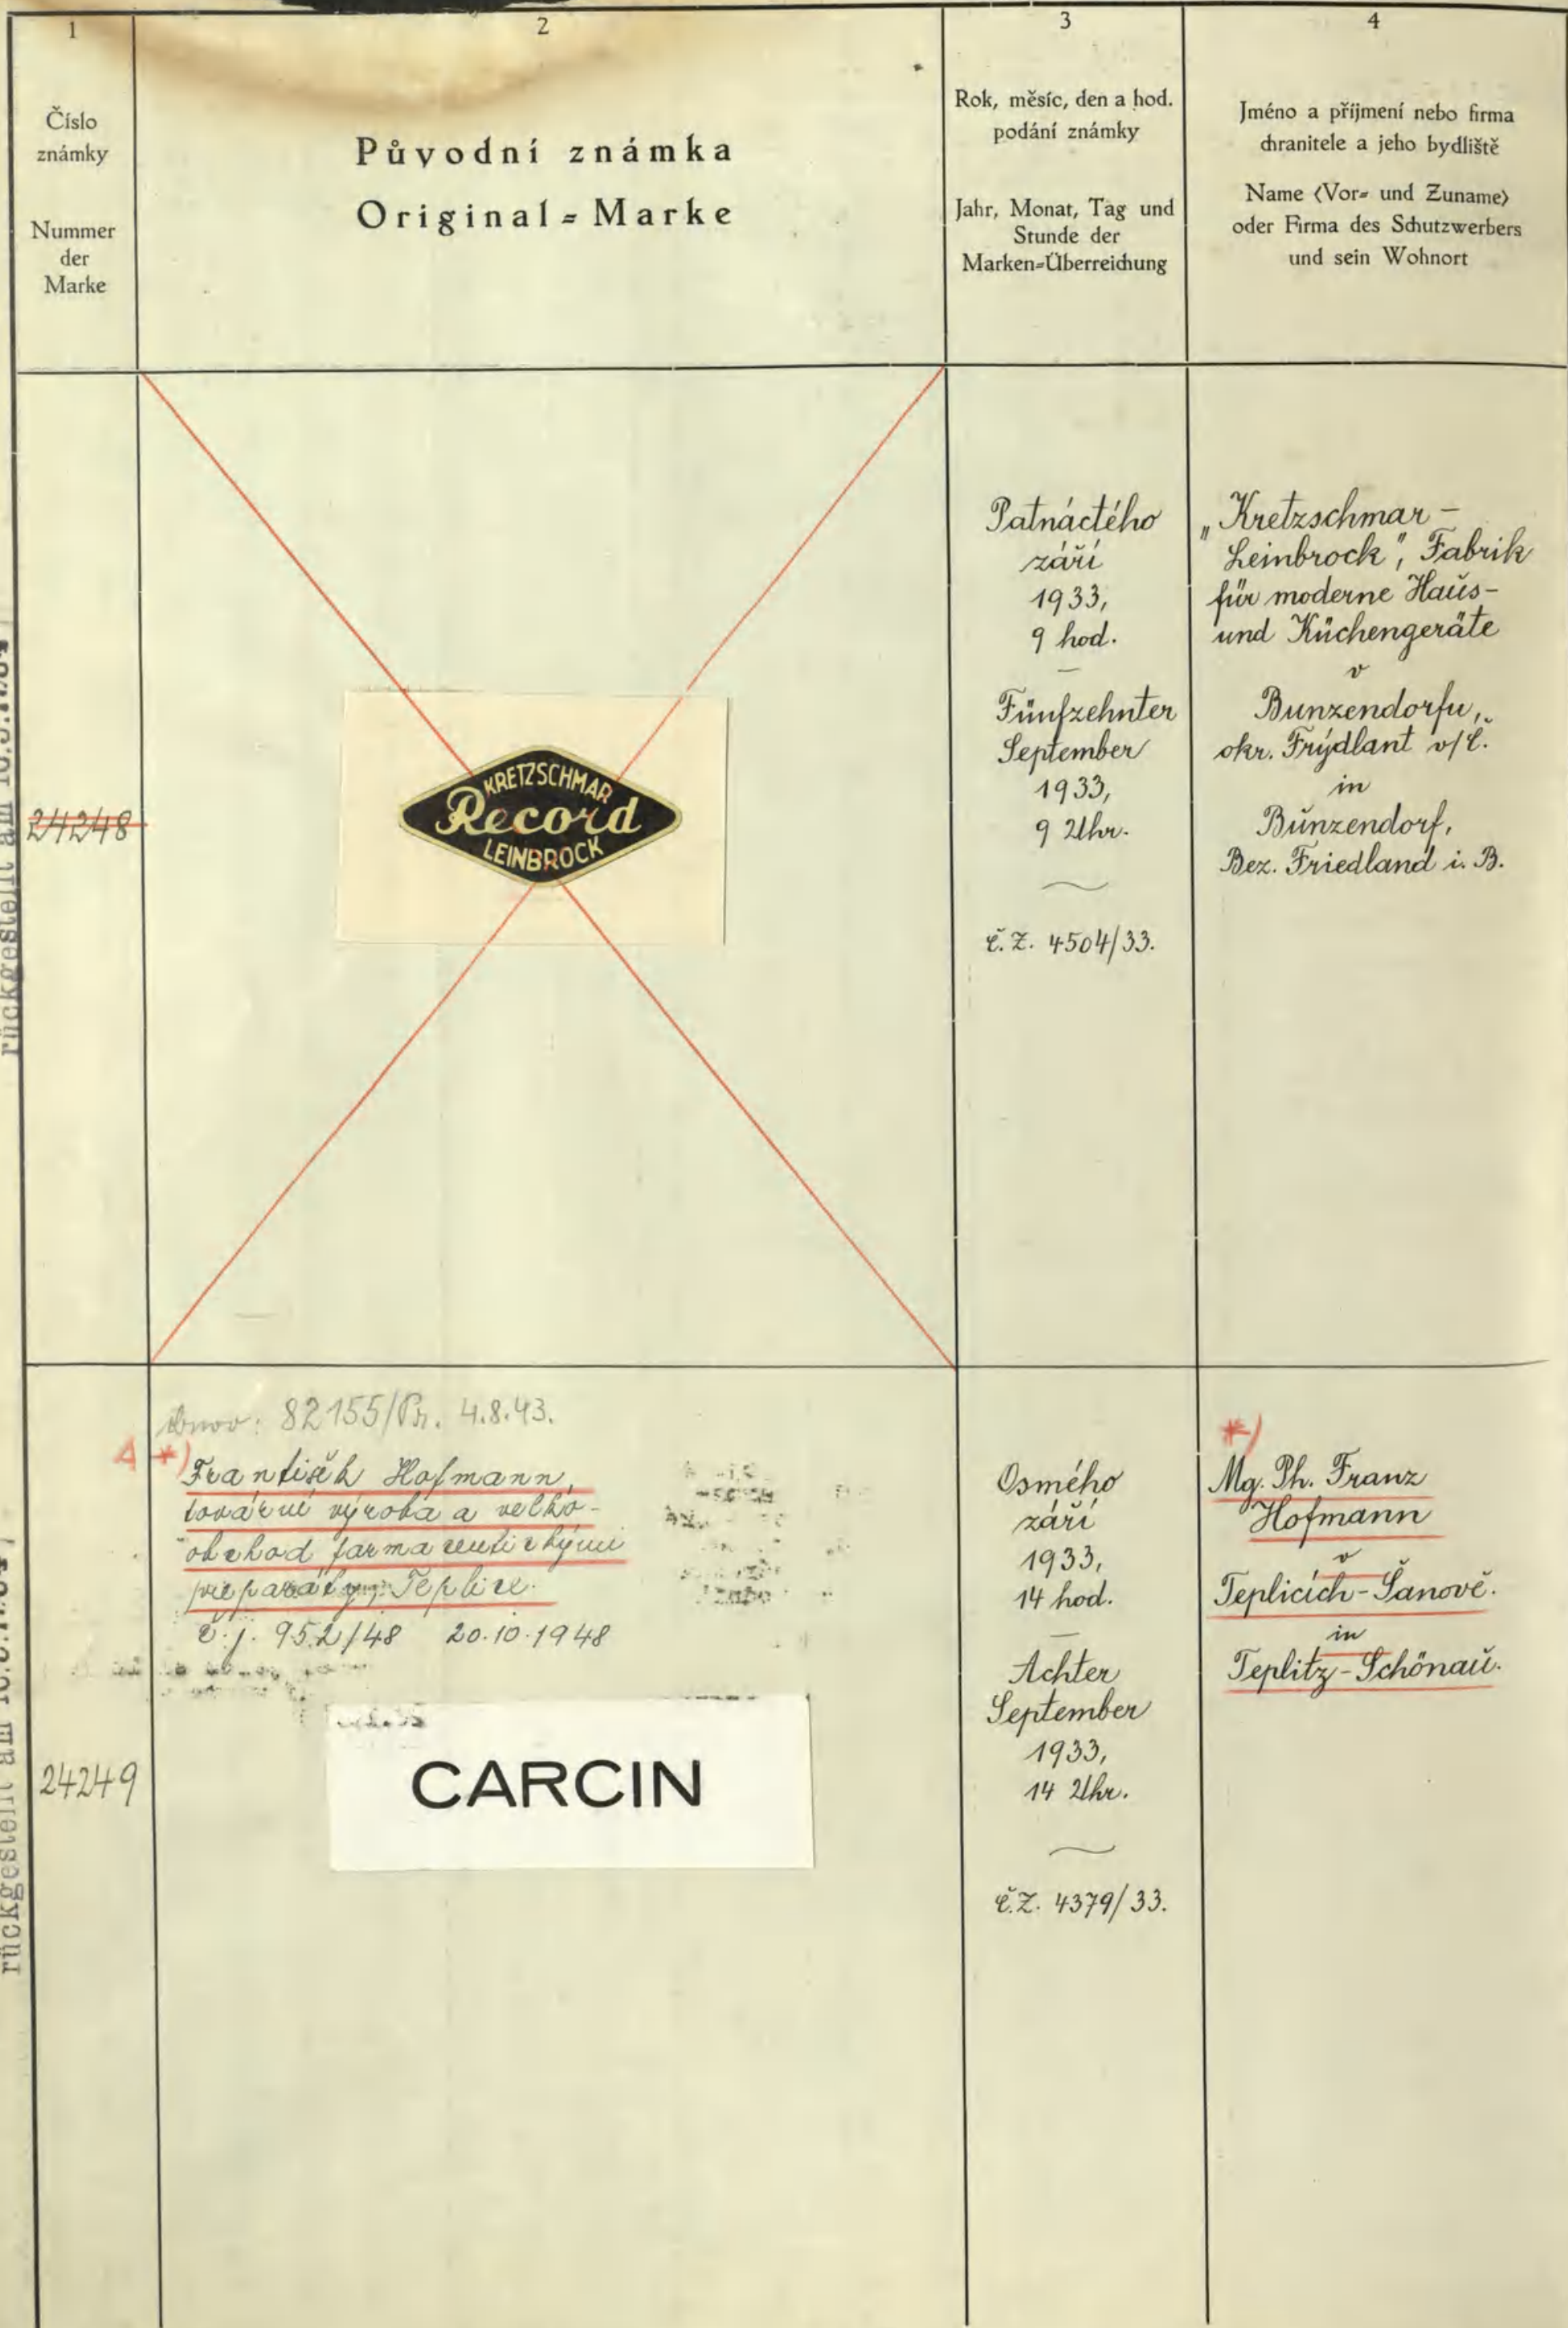 1
Číslo
známky
Nummer
der
Marke
2
Původní známka
Original=Marke
3
Rok, měsíc, den a hod.
podání známky
Jahr, Monat, Tag und
Stunde der
Marken=Überreichung
4
Jméno a příjmení nebo firma
chranitele a jeho bydliště
Name (Vor= und Zuname)
oder Firma des Schutzwerbers
und sein Wohnort
rückgestellt am
24248
KRETZSCHMAR
Record
LEINBROCK
Patnáctého
září
1933,
9 hod.
—
Fünfzehnter
September
1933,
9 Uhr.
č. Z. 4504/33.
„Kretzschmar-
Leinbrock", Fabrik
für moderne Haus-
und Küchengeräte
v
Bunzendorfu,
okr. Frýdlant v/Č.
in
Bunzendorf,
Bez. Friedland i. B.
rückgestellt am
24249
obnov: 82155/Pr. 4.8.43.
*)
František Hofmann,
tovární výroba a velko-
obchod farmaceutickými
preparáty, Teplice.
č.j. 952/48 20.10.1948
CARCIN
Osmého
září
1933,
14 hod.
—
Achter
September
1933,
14 Uhr.
č.Z. 4379/33.
*)
Mg. Ph. Franz
Hofmann
v
Teplicích-Šanově.
in
Teplitz-Schönau.